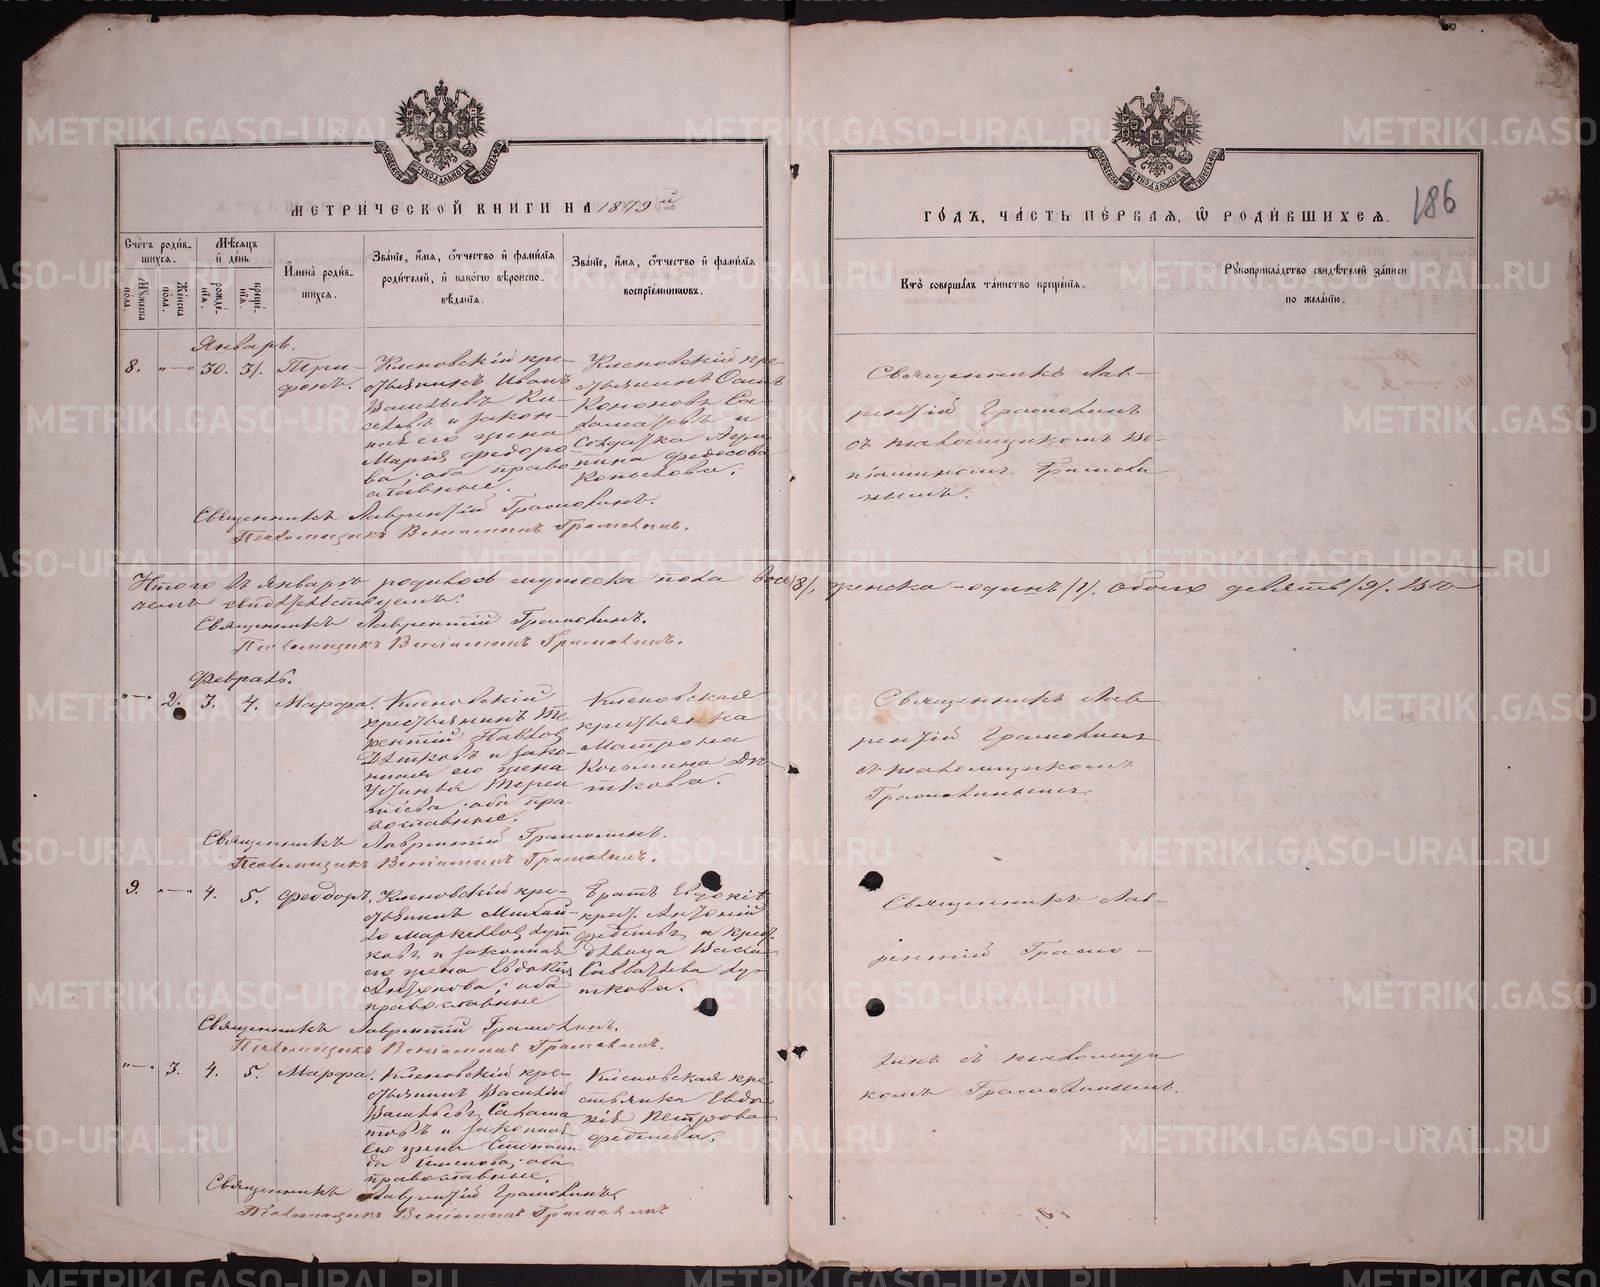 МЕТРИЧЕСКОЙ КНИГИ НА 1879й
ГОДЪ, ЧАСТЬ ПЕРВАЯ, Ѿ РОДИВШИХСЯ.
186
Счетъ родившихся.
Мужеска пола.
Женска пола.
Мѣсяцъ и день
рожденія.
крещенія.
Имена родившихся.
Званіе, имя, отчество и фамилія родителей, и какого вѣроисповѣданія.
Званіе, имя, отчество и фамилія воспріемниковъ.
Кто совершалъ таинство крещенія.
Рукоприкладство свидѣтелей записи по желанію.
Январь.
8. „—„ 30. 31. Трифонъ.
Кленовскій крестьянинъ Иванъ
Васильевъ
и законная его жена
Марія Федорова; оба православные.
Кленовскій крестьянинъ Осипъ
Кононовъ
и
Солдатка
Федосова
Копылова.
Священникъ Лав-
рентій Грамолинъ
съ псаломщикомъ Ве-
ніаминомъ Грамоли-
нымъ.
Священникъ Лаврентій Грамолинъ.
Псаломщикъ Веніаминъ Грамолинъ.
Итого въ январѣ родилось мужеска пола восе/8/, женска - одинъ /1/. Обоего девять /9/. Въ
чемъ свидѣтельствуемъ:
Священникъ Лаврентій Грамолинъ.
Псаломщикъ Веніаминъ Грамолинъ.
Февраль.
„—„ 2. 3. 4. Марфа.
Кленовскій
крестьянинъ Те-
рентій Павловъ
и зако-
нная его жена
Устинья Терен-
тіева; оба пра-
вославные.
Кленовская
крестьянка
Матрона
Козьмина
Священникъ Лав-
рентій Грамолинъ
съ псаломщикомъ
Грамолинымъ.
Священникъ Лаврентій Грамолинъ.
Псаломщикъ Веніаминъ Грамолинъ.
9. „—„ 4. 5. Феодоръ.
Кленовскій кре-
стьянинъ Михай-
ло Маркеловъ
и законная
его жена Евдокія
Антонова; оба
православные
Братъ Евдокіи
крест. Антоній
и крест.
дѣвица
Савватѣева
Священникъ Лав-
рентій Грамо-
линъ съ псаломщи-
комъ Грамолинымъ.
Священникъ Лаврентій Грамолинъ.
Псаломщикъ Веніаминъ Грамолинъ.
„—„ 3. 4. 5. Марфа.
Кленовскій кре-
стьянинъ Василій
Васильевъ
и законная
его жена
оба
православные.
Кленовская кре-
стьянка Евдо-
кія Петрова
Священникъ Лаврентій Грамолинъ.
Псаломщикъ Веніаминъ Грамолинъ
METRIKI.GASO-URAL.RU